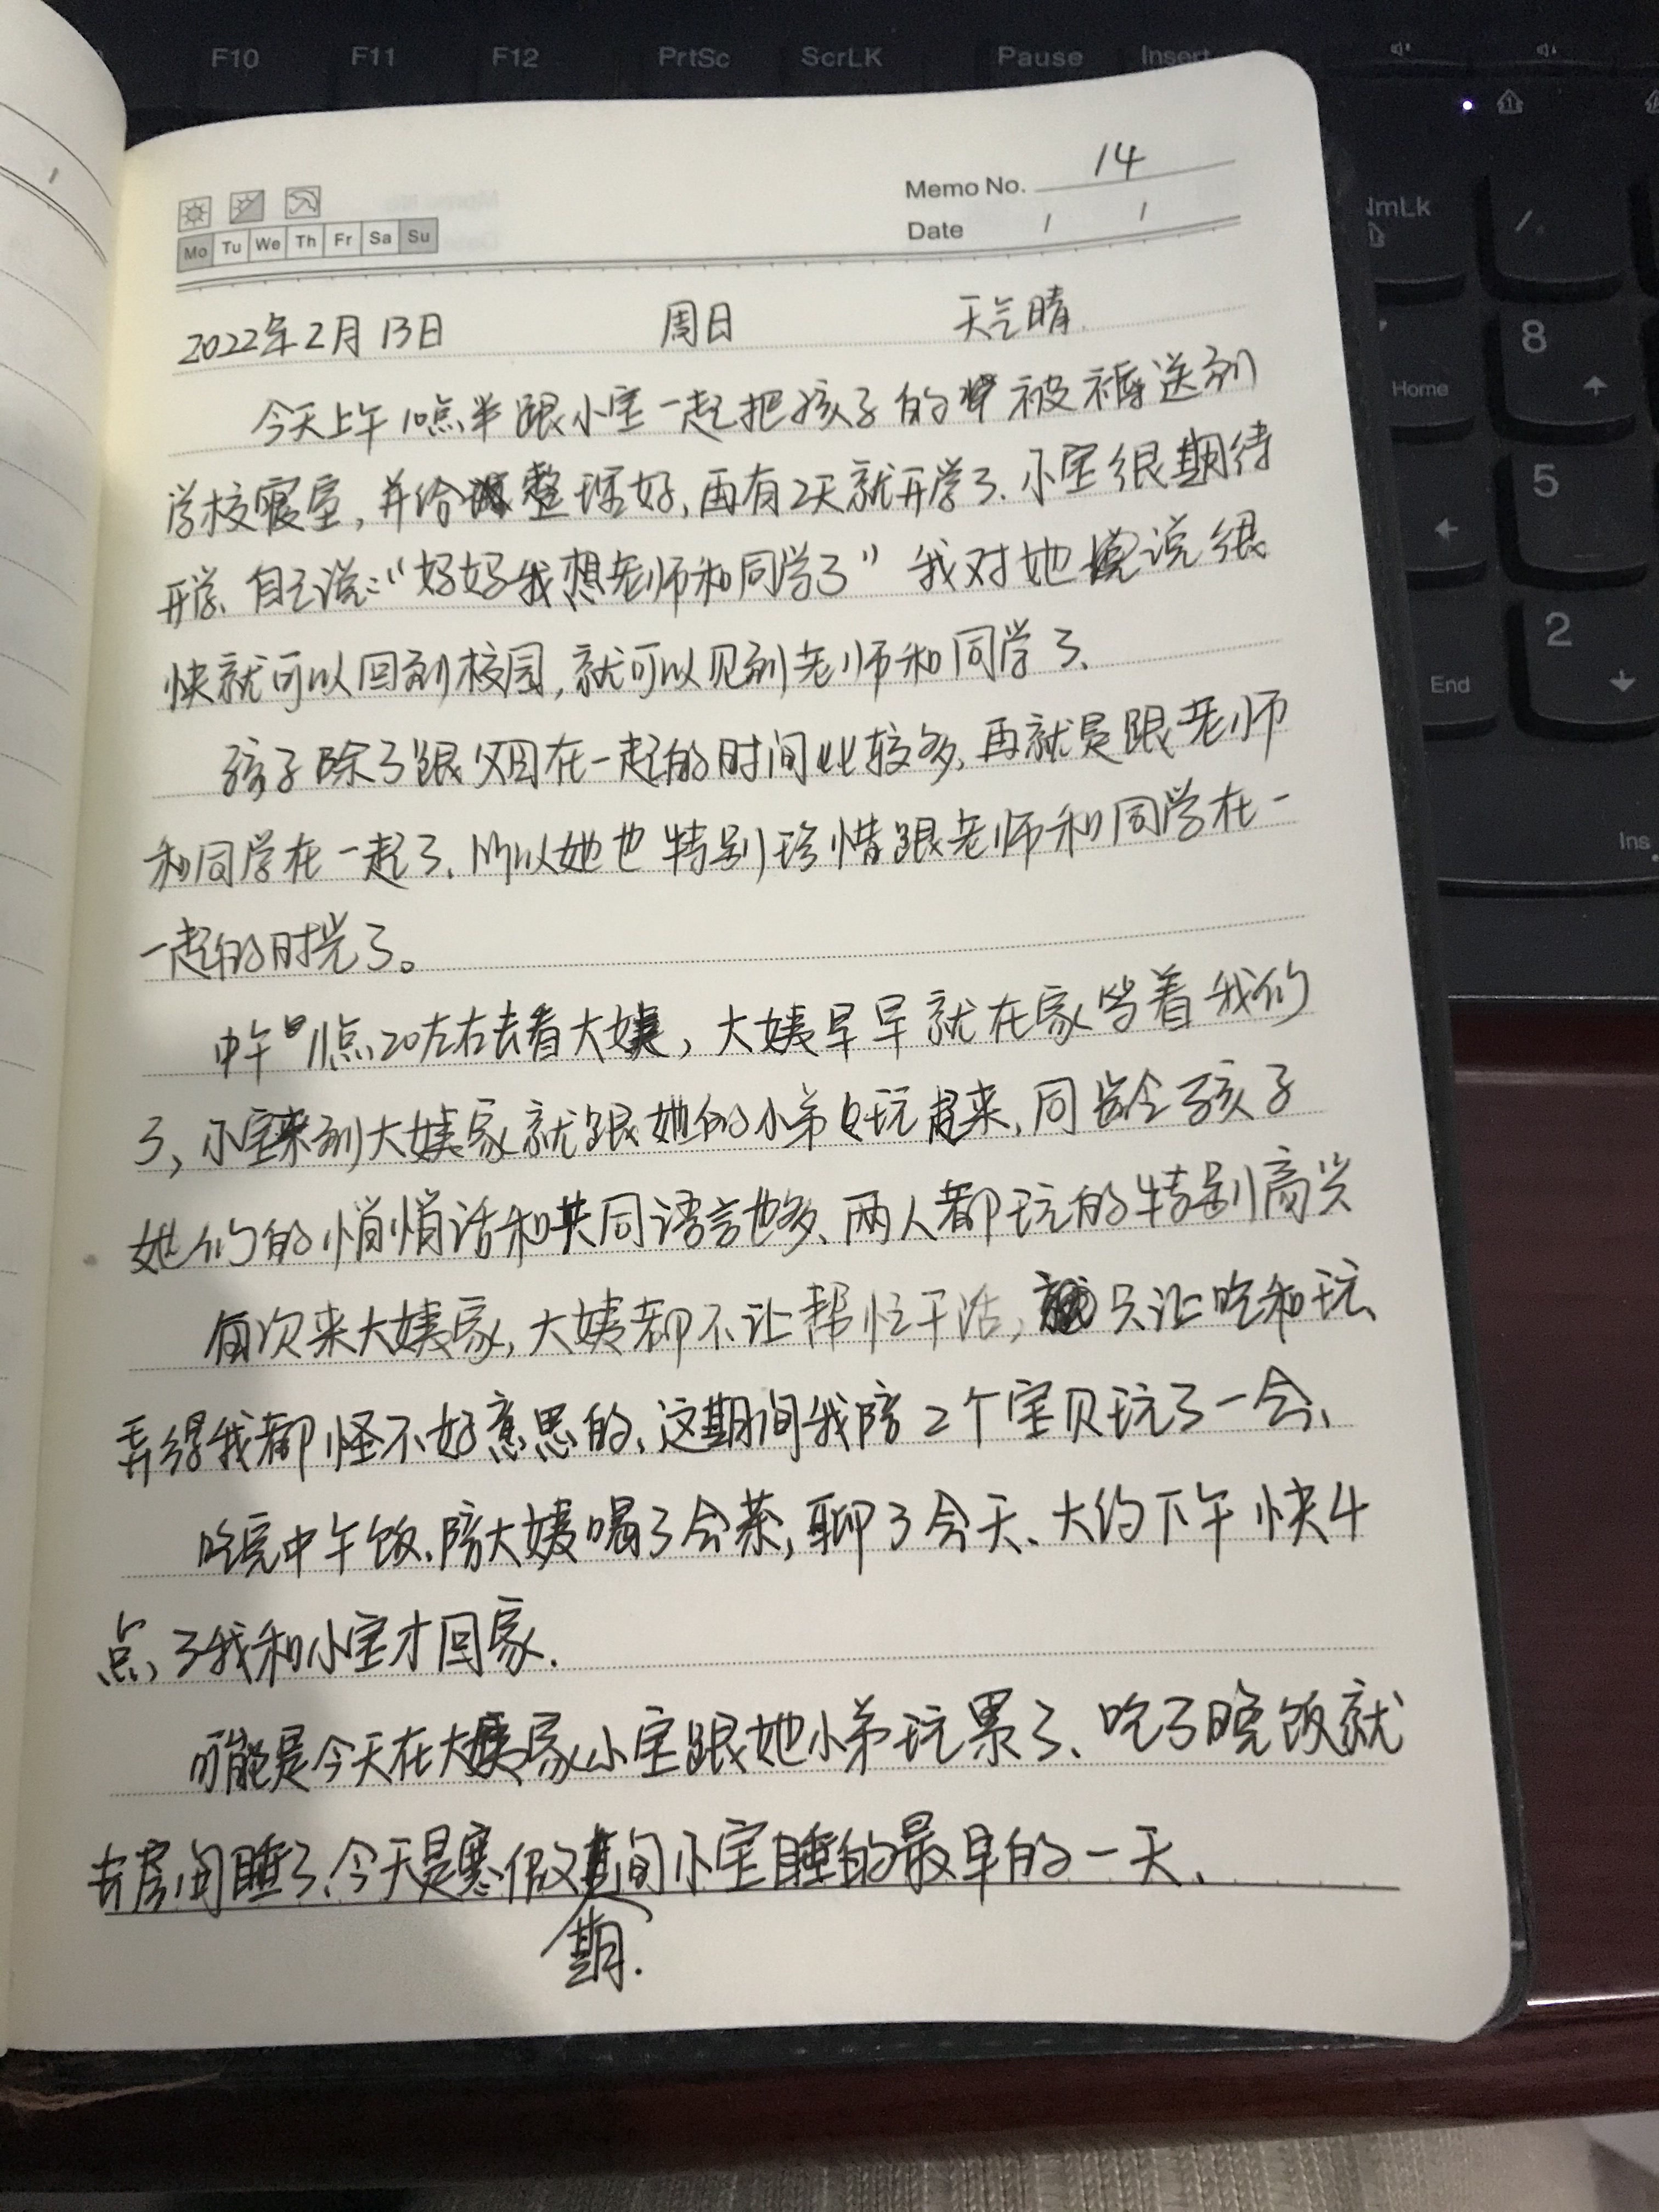 F10 F11 F12 PrtSc ScrLK Pause Insert
Memo No. 14
Mo Tu We Th Fr Sa Su
Date / /
2022年2月13日 周日 天气晴
今天上午10点半跟小宝一起把孩子的被褥送到
学校寝室,并给整理好,再有2天就开学了、小宝很期待
开学、自己说:“好好我想老师和同学了”我对她说很
快就可以回到校园,就可以见到老师和同学了、
孩子除了跟父母在一起的时间比较多、再就是跟老师
和同学在一起了、所以她也特别珍惜跟老师和同学在一
一起的时光了。
中午11点20左右去看大姨,大姨早早就在家等着我们
了,小宝来到大姨家就跟她的小弟玩起来、同龄孩子
她们的悄悄话和共同语言也多、两人都玩的特别高兴
每次来大姨家,大姨都不让帮忙干活,只让吃和玩、
弄得我都怪不好意思的、这期间我陪2个宝贝玩了一会、
吃完中午饭、陪大姨喝了会茶,聊了会天、大约下午快4
点了我和小宝才回家.
可能是今天在大姨家小宝跟她小弟玩累了、吃了晚饭就
去房间睡了、今天是寒假期间小宝睡的最早的一天、
期.
NmLk
/
Home
8
5
2
End
Ins